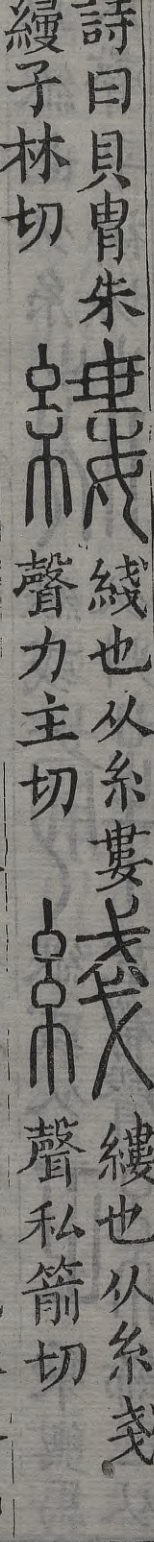 詩曰貝冑朱
綅子林切
縷
綫也从糸婁
聲力主切
綫
縷也从糸戔
聲私箭切